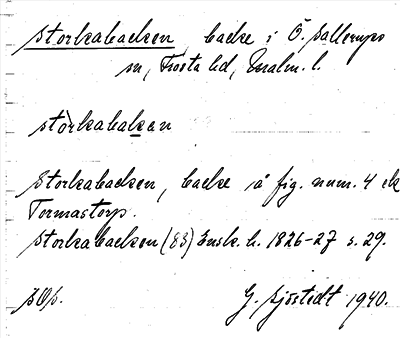 Storkabacken, backe i Ö. Sallerups
sn, Frosta hd, Malm. l.
stòrkabakan
Storkabacken, backe å fig. num. 4 ek
Tormastorp.
Storkabacken (83) Ensk. h. 1826-27 s. 29.
G. Sjöstedt 1940.